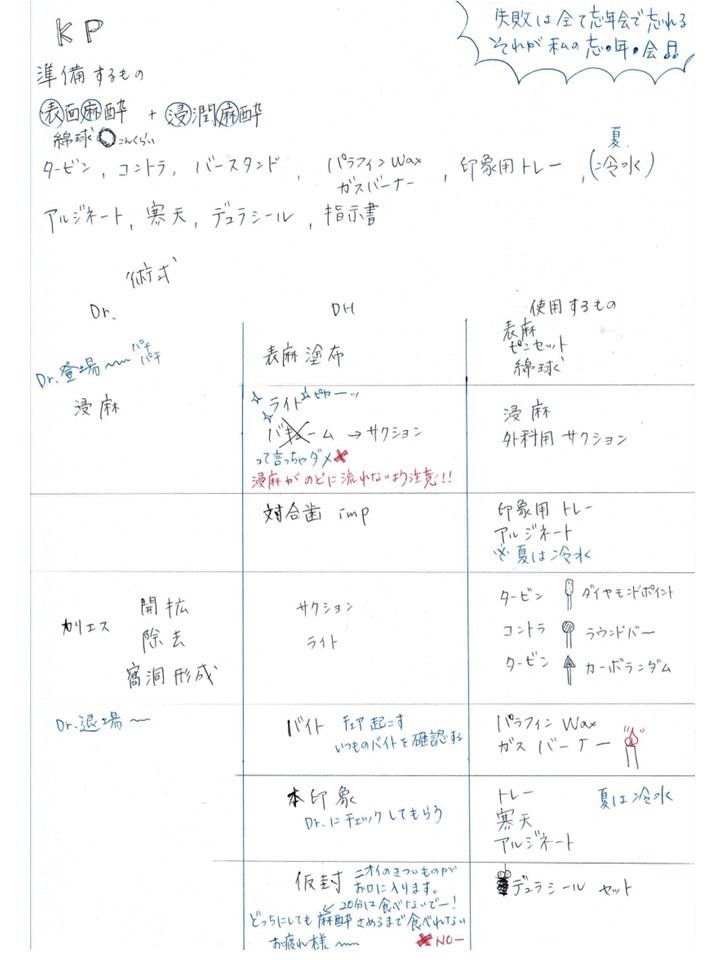 失敗は全て忘年会で忘れる
それが私の忘・年・会!!
KP
準備するもの
表面麻酔 + 浸潤麻酔
綿球 こんくらい
タービン, コントラ, バースタンド, パラフィンWax ガスバーナー, 印象用トレー, (夏 冷水)
アルジネート, 寒天, デュラシール, 指示書
術式
Dr. DH 使用するもの
Dr.登場〜 パチパチ
表麻塗布
表麻
ピンセット
綿球
浸麻
ライト ピヤーッ
バキューム → サクション
って言っちゃダメ
浸麻がのどに流れないよう注意!!
浸麻
外科用サクション
対合歯 imp
印象用トレー
アルジネート
※夏は冷水
カリエス 開拡
除去
窩洞形成
サクション
ライト
タービン ダイヤモンドポイント
コントラ ラウンドバー
タービン カーボランダム
Dr.退場〜
バイト チェア起こす
いつものバイトを確認する
パラフィンWax
ガスバーナー
本印象
Dr.にチェックしてもらう
トレー 夏は冷水
寒天
アルジネート
仮封 ニオイのきついものが
お口に入ります。
20分は食べないでー!
どっちにしても麻酔さめるまで食べれない
お疲れ様〜 NO−
デュラシールセット